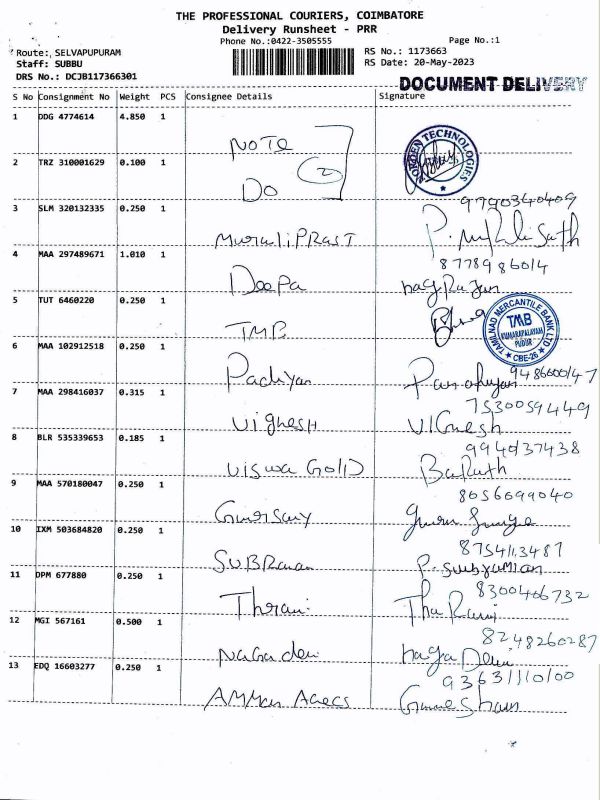 THE PROFESSIONAL COURIERS, COIMBATORE
Delivery Runsheet - PRR
Phone No.:0422-3505555 Page No.:1
Route: SELVAPUPURAM RS No.: 1173663
Staff: SUBBU RS Date: 20-May-2023
DRS No.: DCJB117366301
DOCUMENT DELIVERY
S No Consignment No Weight PCS Consignee Details Signature
1 DDG 4774614 4.850 1
NOTE
TECHNOLOGIES
2 TRZ 310001629 0.100 1
(2)
DO
9790340409
3 SLM 320132335 0.250 1
MuraliPRASI
8778986014
4 MAA 297489671 1.010 1
Deepa nagRajun
5 TUT 6460220 0.250 1
TMB
TAMILNAD MERCANTILE BANK LTD
TMB
KUMARAPALAYAM
PUDUR
CBE-26
6 MAA 102912518 0.250 1
9486600147
Pachiyan
7 MAA 298416037 0.315 1
7530059449
Vighesh VIGnesh
8 BLR 535339653 0.185 1
9940137438
Viswa GOLD Barath
9 MAA 570180047 0.250 1
8056099040
10 IXM 503684820 0.250 1
8754113487
SUBRaman P. Subramian
11 DPM 677880 0.250 1
8300406732
Tharani Tha Rani
12 MGI 567161 0.500 1
8248260287
Naga devi naga Devi
13 EDQ 16603277 0.250 1
93631/10/00
AMMan